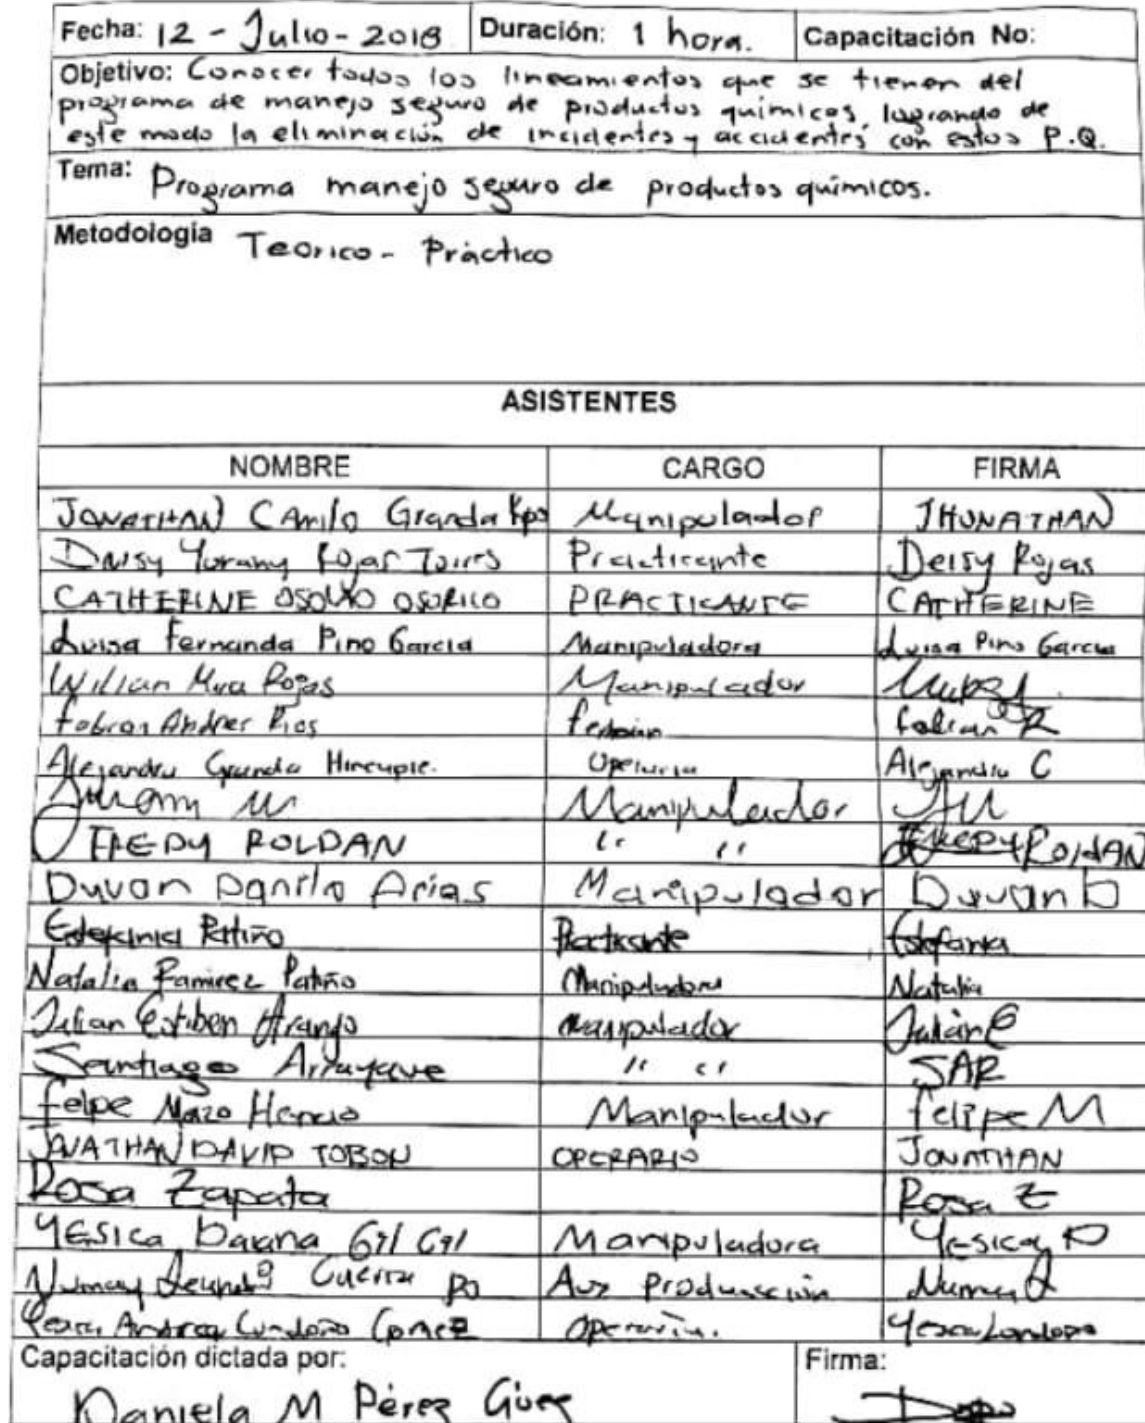 Fecha: 12 - Julio - 2018 Duración: 1 hora. Capacitación No:
Objetivo: Conocer todos los lineamientos que se tienen del
programa de manejo seguro de productos químicos, logrando de
este modo la eliminación de incidentes y accidentes con estos P.Q.
Tema: Programa manejo seguro de productos químicos.
Metodologia Teorico - Práctico
ASISTENTES
NOMBRE CARGO FIRMA
JONATHAN CAmilo Granda Manipulador JHONATHAN
Deisy Yurany Rojas Torres Practicante Deisy Rojas
CATHERINE OSORIO OSORIO PRACTICANTE CATHERINE
Luisa Fernanda Pino Garcia Manipuladora Luisa Pino Garcia
Willian Rojas Manipulador
Fabian Andres Rios Fabian R
Alejandra Granda Operaria Alejandra C
Manipulador
FREDY ROLDAN " " FREDY ROLDAN
Duvan Danilo Arias Manipulador Duvan D
Estefania Patiño Practicante Estefania
Natalia Ramirez Patiño Manipuladora Natalia
Julian Estiben Arango Manipulador Julian E
Santiago Arroyave " " SAR
Felipe Mazo Manipulador Felipe M
JONATHAN DAVID TOBON OPERARIO JONATHAN
Rosa Zapata Rosa Z
YESICA Daiana Gil Gil Manipuladora Yesica D
Guerra Aux Producción
Andrea Londoño Gomez Operaria. Londoño
Capacitación dictada por: Firma:
Daniela M Pérez